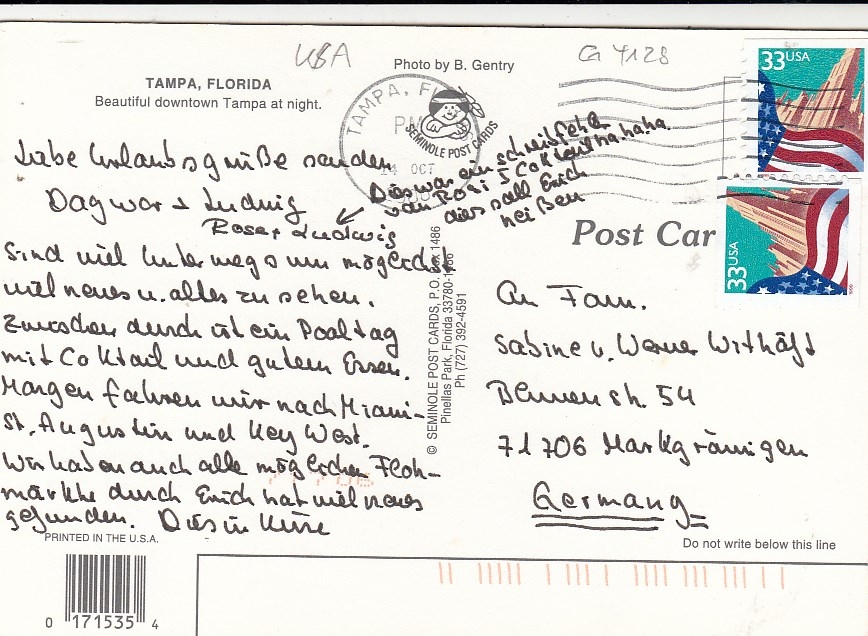 USA
Photo by B. Gentry
G 4128
TAMPA, FLORIDA
Beautiful downtown Tampa at night.
TAMPA, FL
PM
14 OCT
SEMINOLE POST CARDS
33USA
33USA
Liebe Urlaubsgrüße senden
Dagmar + Ludwig
Rosa + Ludwig
Dies war ein schreibfehler
von Rosi 5 Coktail hahaha
dies soll Erich
heißen
Sind viel Unterwegs um möglichst
viel neues u. alles zu sehen.
Zwischen durch ist ein Pooltag
mit Coktail und gutem Essen.
Morgen fahren wir nach Miami-
St. Augustin und Key West.
Wir haben auch alle möglichen Floh-
märkte durch Erich hat viel neues
gefunden. Dies in Kürze
© SEMINOLE POST CARDS, P.O. Box 1486
Pinellas Park, Florida 33780-1486
Ph (727) 392-4591
Post Car
An Fam.
Sabine u. Werner
Blumenstr. 54
71706 Markgröningen
Germany
PRINTED IN THE U.S.A.
Do not write below this line
0 171535 4